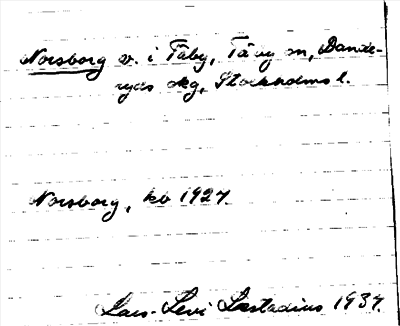 Norsborg v. i Täby, Täby sn, Dande-
ryds skg, Stockholms l.
Norsborg, kb 1927.
Lars-Levi Læstadius 1937.